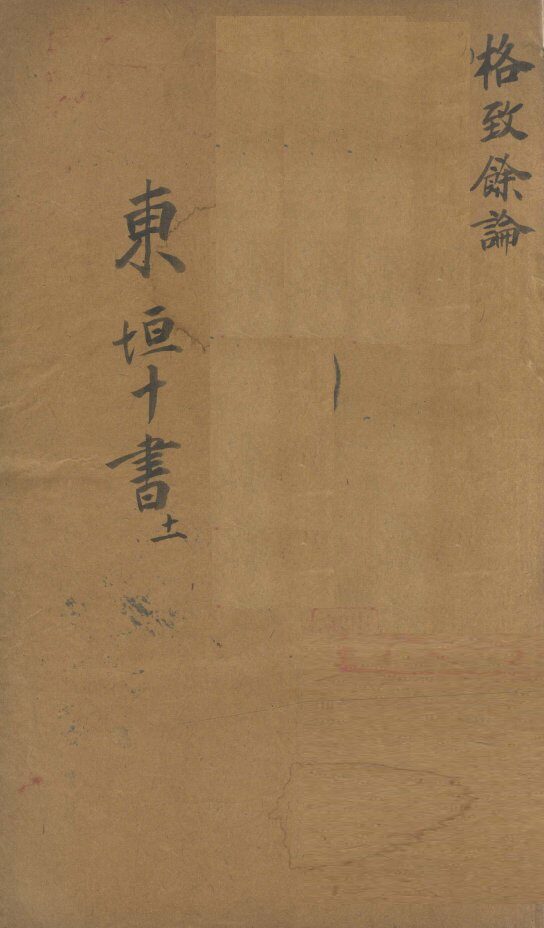 格致餘論
東垣十書 十一